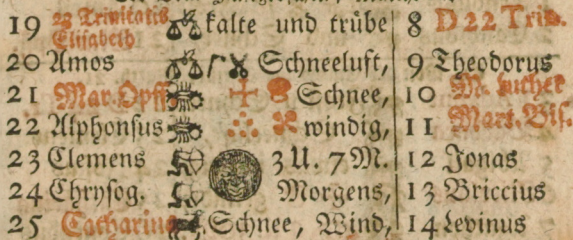 19 23 Trinitatis Elisabeth kalte und trübe 8 D 22 Trin.
20 Amos Schneeluft, 9 Theodorus
21 Mar. Opff Schnee, 10 M. Luther
22 Alphonsus windig, 11 Mart. Bis.
23 Clemens 3 U. 7 M. 12 Jonas
24 Chrysog. Morgens, 13 Briccius
25 Catharina Schnee, Wind, 14 Levinus